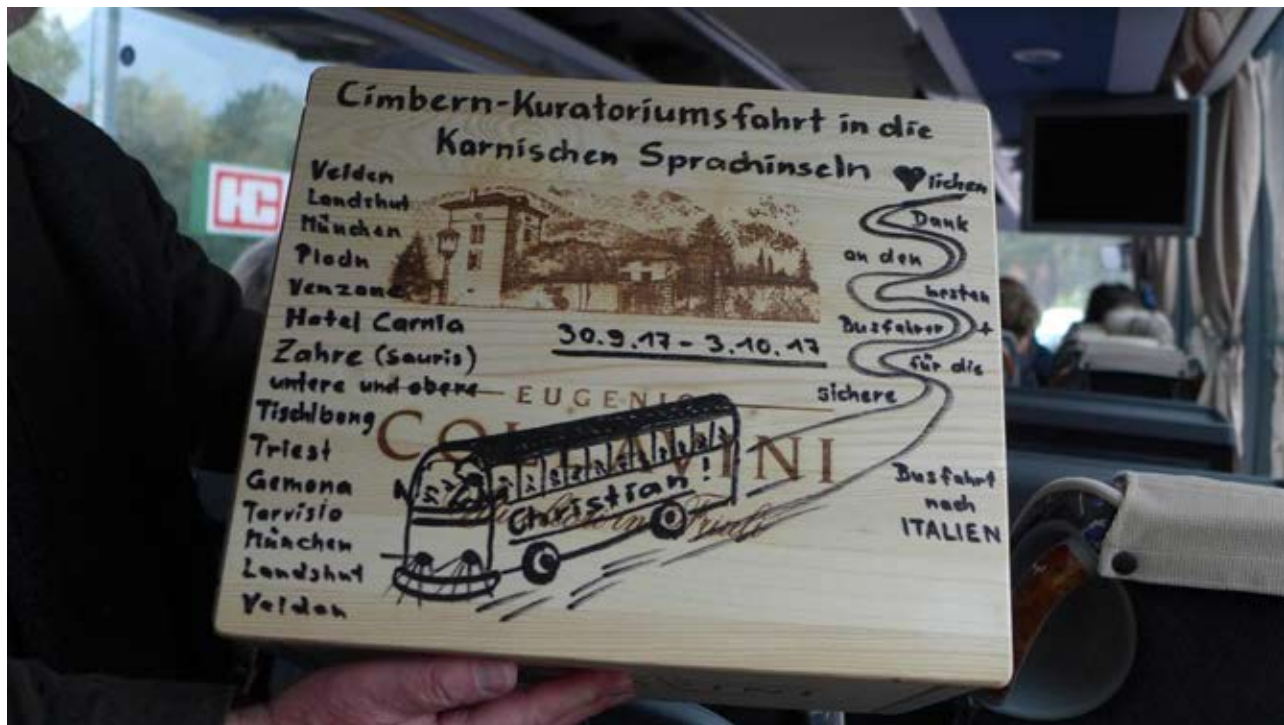 Cimbern-Kuratoriumsfahrt in die
Karnischen Sprachinseln
Velden
Landshut
München
Plodn
Venzone
Hotel Carnia
Zahre (Sauris)
untere und obere
Tischlbong
Triest
Gemona
Tarvisio
München
Landshut
Velden
30.9.17 - 3.10.17
♥lichen
Dank
an den
besten
Busfahrer +
für die
sichere
Busfahrt
nach
ITALIEN
EUGENIO
COLLAVINI
Christian!
HC